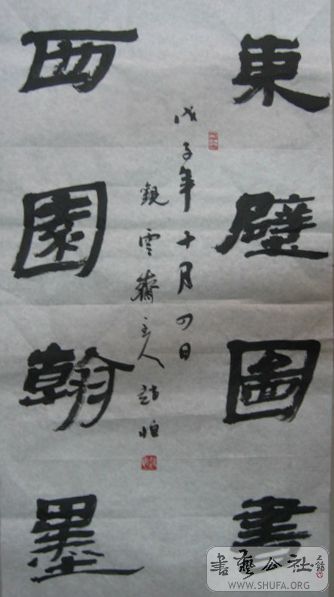 東壁圖書
西園翰墨
戊子年十月四日
觀雲齋主人
書藝公社
WWW.SHUFA.ORG